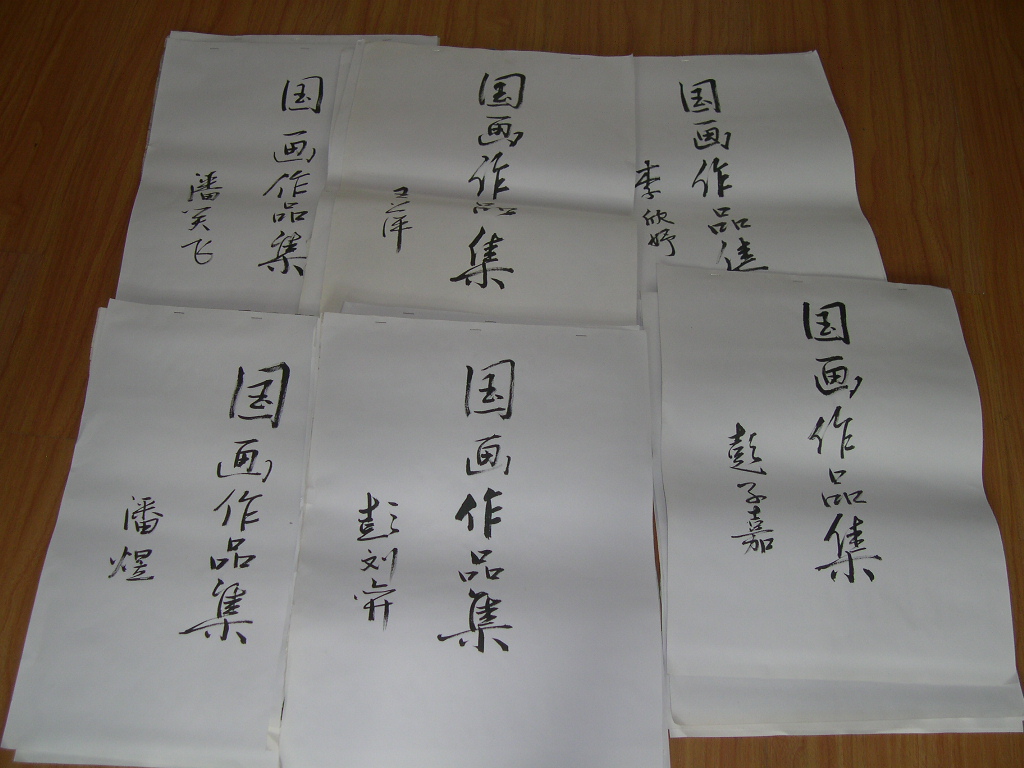 国画作品集
潘笑飞
国画作品集
国画作品集
李欣妤
国画作品集
潘煜
国画作品集
彭刘弈
国画作品集
彭子嘉